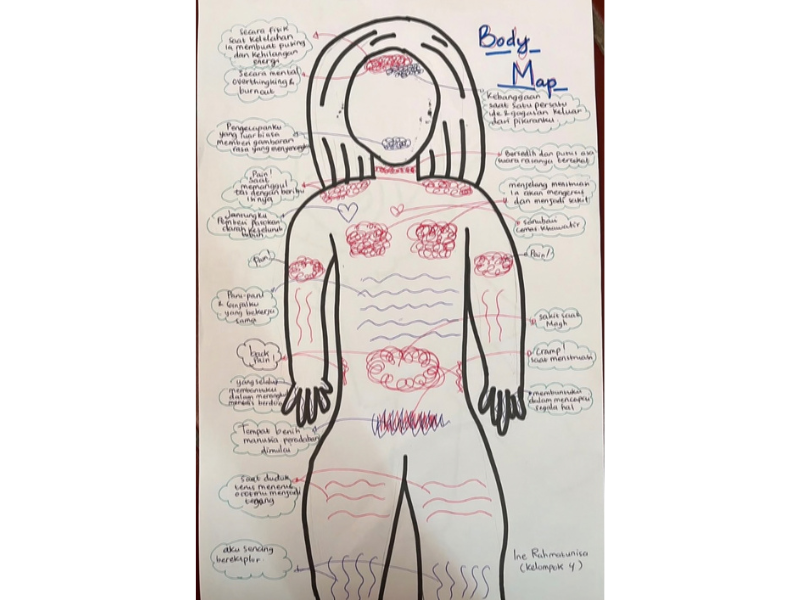 Body
Map
Secara fisik
saat kelelahan
ia membuat pusing
dan kehilangan
energi
Secara mental
overthingking &
burnout
Kebanggaan
saat satu persatu
ide & gagasan keluar
dari pikiranku.
Pengecapanku
yang luar biasa
memberi gambaran
rasa yang
Bersedih dan putus asa
suara rasanya tercekat
Pain!
saat
memanggul
tas dengan
menjelang menstruasi
ia akan mengeras
dan menjadi sakit
Jantungku
Pemberi pasokan
darah keseluruh
tubuh
cemas khawatir
pain!
Pain!
Paru-paru
& Ginjalku
yang bekerja
sama
sakit saat
Magh
back
pain!
Cramp!
saat menstruasi
yang selalu
membantuku
dalam
membantuku
dalam mencapai
segala hal
Tempat benih
manusia peradaban
dimulai
saat duduk
terus menerus
ototmu menjadi
tegang
aku senang
bereksplor
Ine Rahmatunisa
(Kelompok 4)